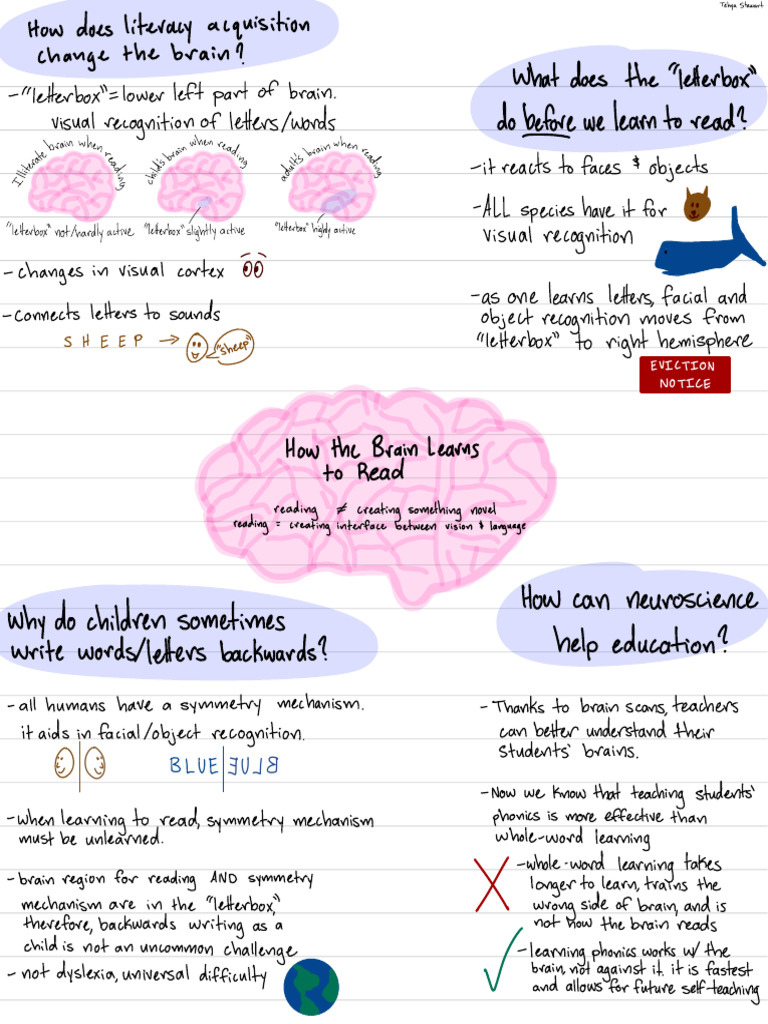 Tehya Stewart
How does literacy acquisition
change the brain?
-"letterbox"=lower left part of brain.
visual recognition of letters/words
Illiterate brain when reading
child's brain when reading
adult's brain when reading
"letterbox" not/hardly active
"letterbox" slightly active
"letterbox" highly active
- changes in visual cortex
- connects letters to sounds
SHEEP → "sheep"
What does the "letterbox"
do before we learn to read?
-it reacts to faces & objects
-ALL species have it for
visual recognition
-as one learns letters, facial and
object recognition moves from
"letterbox" to right hemisphere
EVICTION
NOTICE
How the Brain Learns
to Read
reading ≠ creating something novel
reading = creating interface between vision & language
Why do children sometimes
write words/letters backwards?
-all humans have a symmetry mechanism.
it aids in facial/object recognition.
BLUE|BLUE
-when learning to read, symmetry mechanism
must be unlearned.
-brain region for reading AND symmetry
mechanism are in the "letterbox,"
therefore, backwards writing as a
child is not an uncommon challenge
- not dyslexia, universal difficulty
How can neuroscience
help education?
- Thanks to brain scans, teachers
can better understand their
students' brains.
- Now we know that teaching students'
phonics is more effective than
whole-word learning
-whole-word learning takes
longer to learn, trains the
wrong side of brain, and is
not how the brain reads
-learning phonics works w/ the
brain, not against it. it is fastest
and allows for future self-teaching